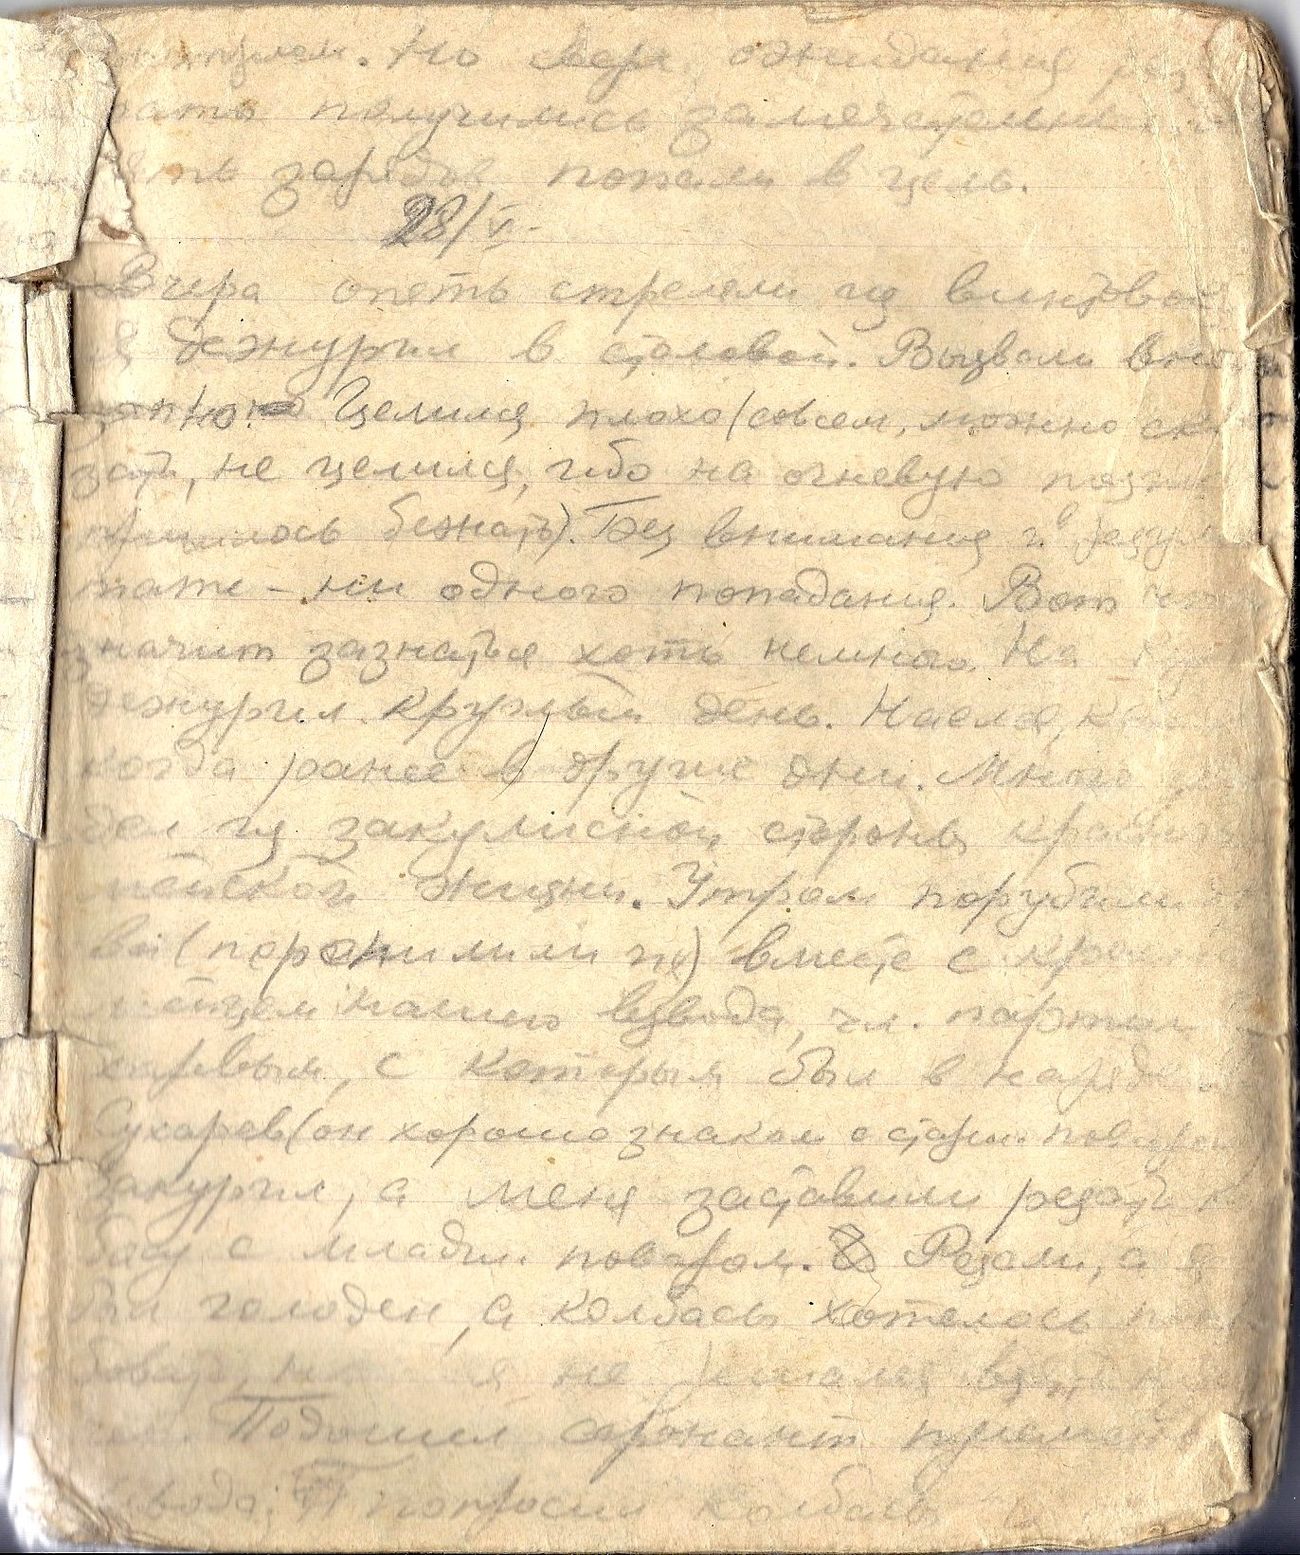 Но сверх ожидания рез
таты получились замечательные
зарядов попали в цель.
28/V.
Вчера опеть стрелели из винтовки
Я дежурил в столовой. Вызвали вне
запно. Целился плохо (совсем, можно ска
зать, не целился, ибо на огневую позици
пришлось бежать). Без внимания и в резуль
тате - ни одного попадания. Вот что
значит зазнаться хоть немного. На
дежурил круглый день. Наелся, как
когда ранее в другие дни. Много ви
дел из закулисной стороны красноар
мейской жизни. Утром порубали
(перепилили их) вместе с красноар
мейцем нашего взвода, чл. партии
харевым, с которым был в наряде.
Сухарев (он хорошо знаком с старш. поваром)
закурил, а меня заставили резать кол
басу с младш. поваром. Резали, а я
был голоден, а колбасы хотелось попро
бовать, но я не решался взять
Подошел сержант
взвода, попросил колбасы